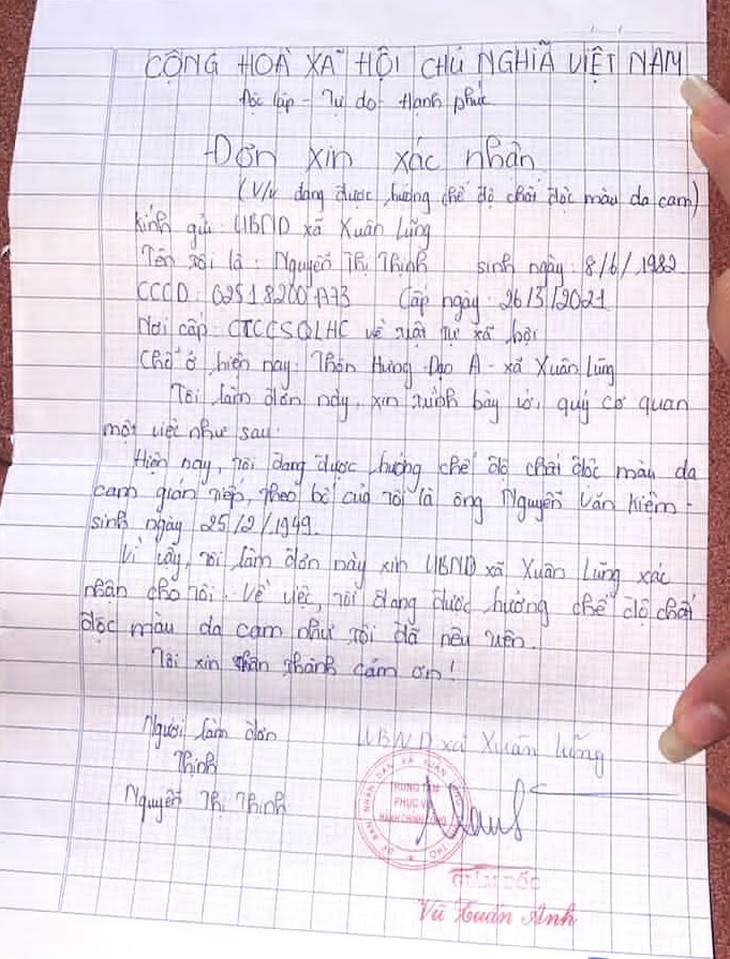 CỘNG HOÀ XÃ HỘI CHỦ NGHĨA VIỆT NAM
Độc lập - Tự do - Hạnh phúc
Đơn xin xác nhận
(V/v đang được hưởng chế độ chất độc màu da cam)
Kính gửi: UBND xã Xuân Lũng
Tên tôi là: Nguyễn Thị Thịnh sinh ngày: 8/6/1982
CCCD: Cấp ngày: 26/3/2021
Nơi cấp: CTCCSQLHC về trật tự xã hội
Chỗ ở hiện nay: Thôn Hưng Đạo A - xã Xuân Lũng
Tôi làm đơn này, xin trình bày với quý cơ quan
một việc như sau:
Hiện nay, tôi đang được hưởng chế độ chất độc màu da
cam gián tiếp, theo bố của tôi là ông Nguyễn Văn Kiệm -
sinh ngày 25/2/1949.
Vì vậy, tôi làm đơn này xin UBND xã Xuân Lũng xác
nhận cho tôi. Về việc, tôi đang được hưởng chế độ chất
độc màu da cam như tôi đã nêu trên.
Tôi xin chân thành cảm ơn!
Người làm đơn UBND xã Xuân Lũng
Thịnh
Nguyễn Thị Thịnh
TRUNG TÂM
PHỤC VỤ
HÀNH CHÍNH CÔNG
GIÁM ĐỐC
Vũ Tuấn Anh